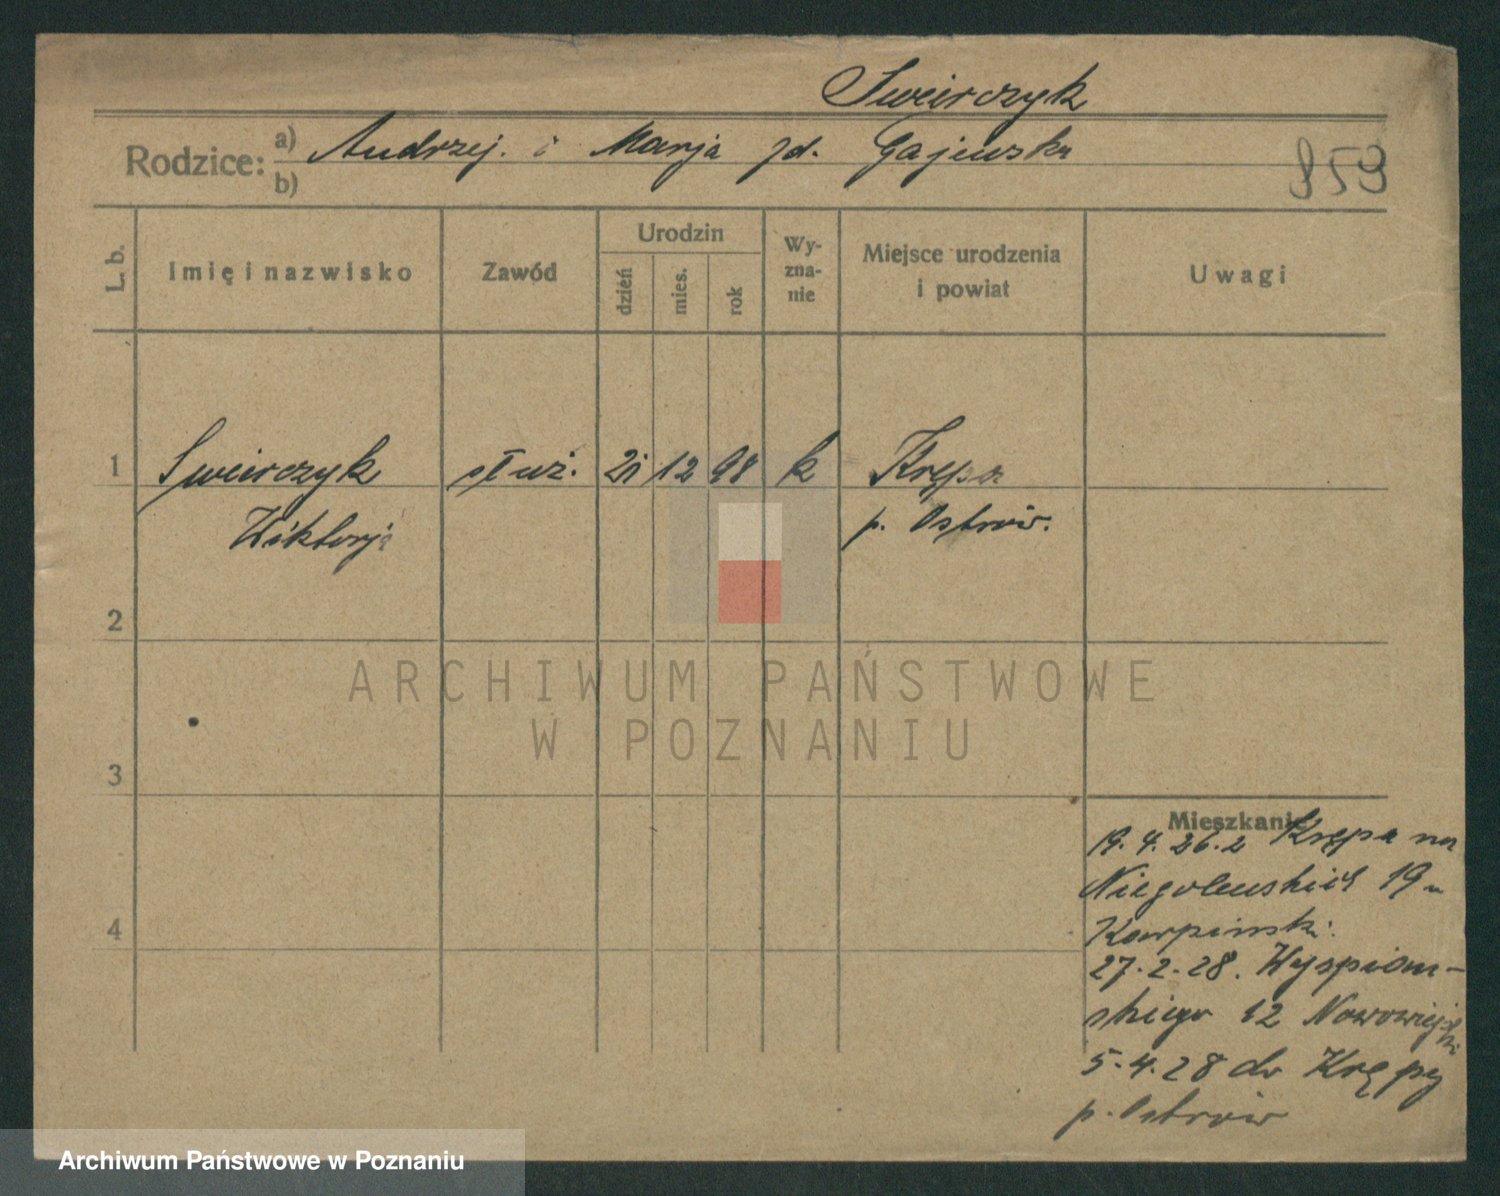 Sweirczyk
Rodzice: a) Andrzej. i Marja zd. Gajewska
b)
859
L. b. Imię i nazwisko Zawód Urodzin dzień mies. rok Wy-zna-nie Miejsce urodzenia i powiat Uwagi
1 Sweirczyk służ. 21 12 98 k Krępa
Wiktorja p. Ostrów.
2
3
4
Mieszkanie
19.4.26. z Krępa na
Niegolewskich 19 u
Karpiński.
27.2.28. Wyspiań-
skiego 12 Nowowiejski
5.4.28 do Krępy
p. Ostrów
ARCHIWUM PAŃSTWOWE
W POZNANIU
Archiwum Państwowe w Poznaniu